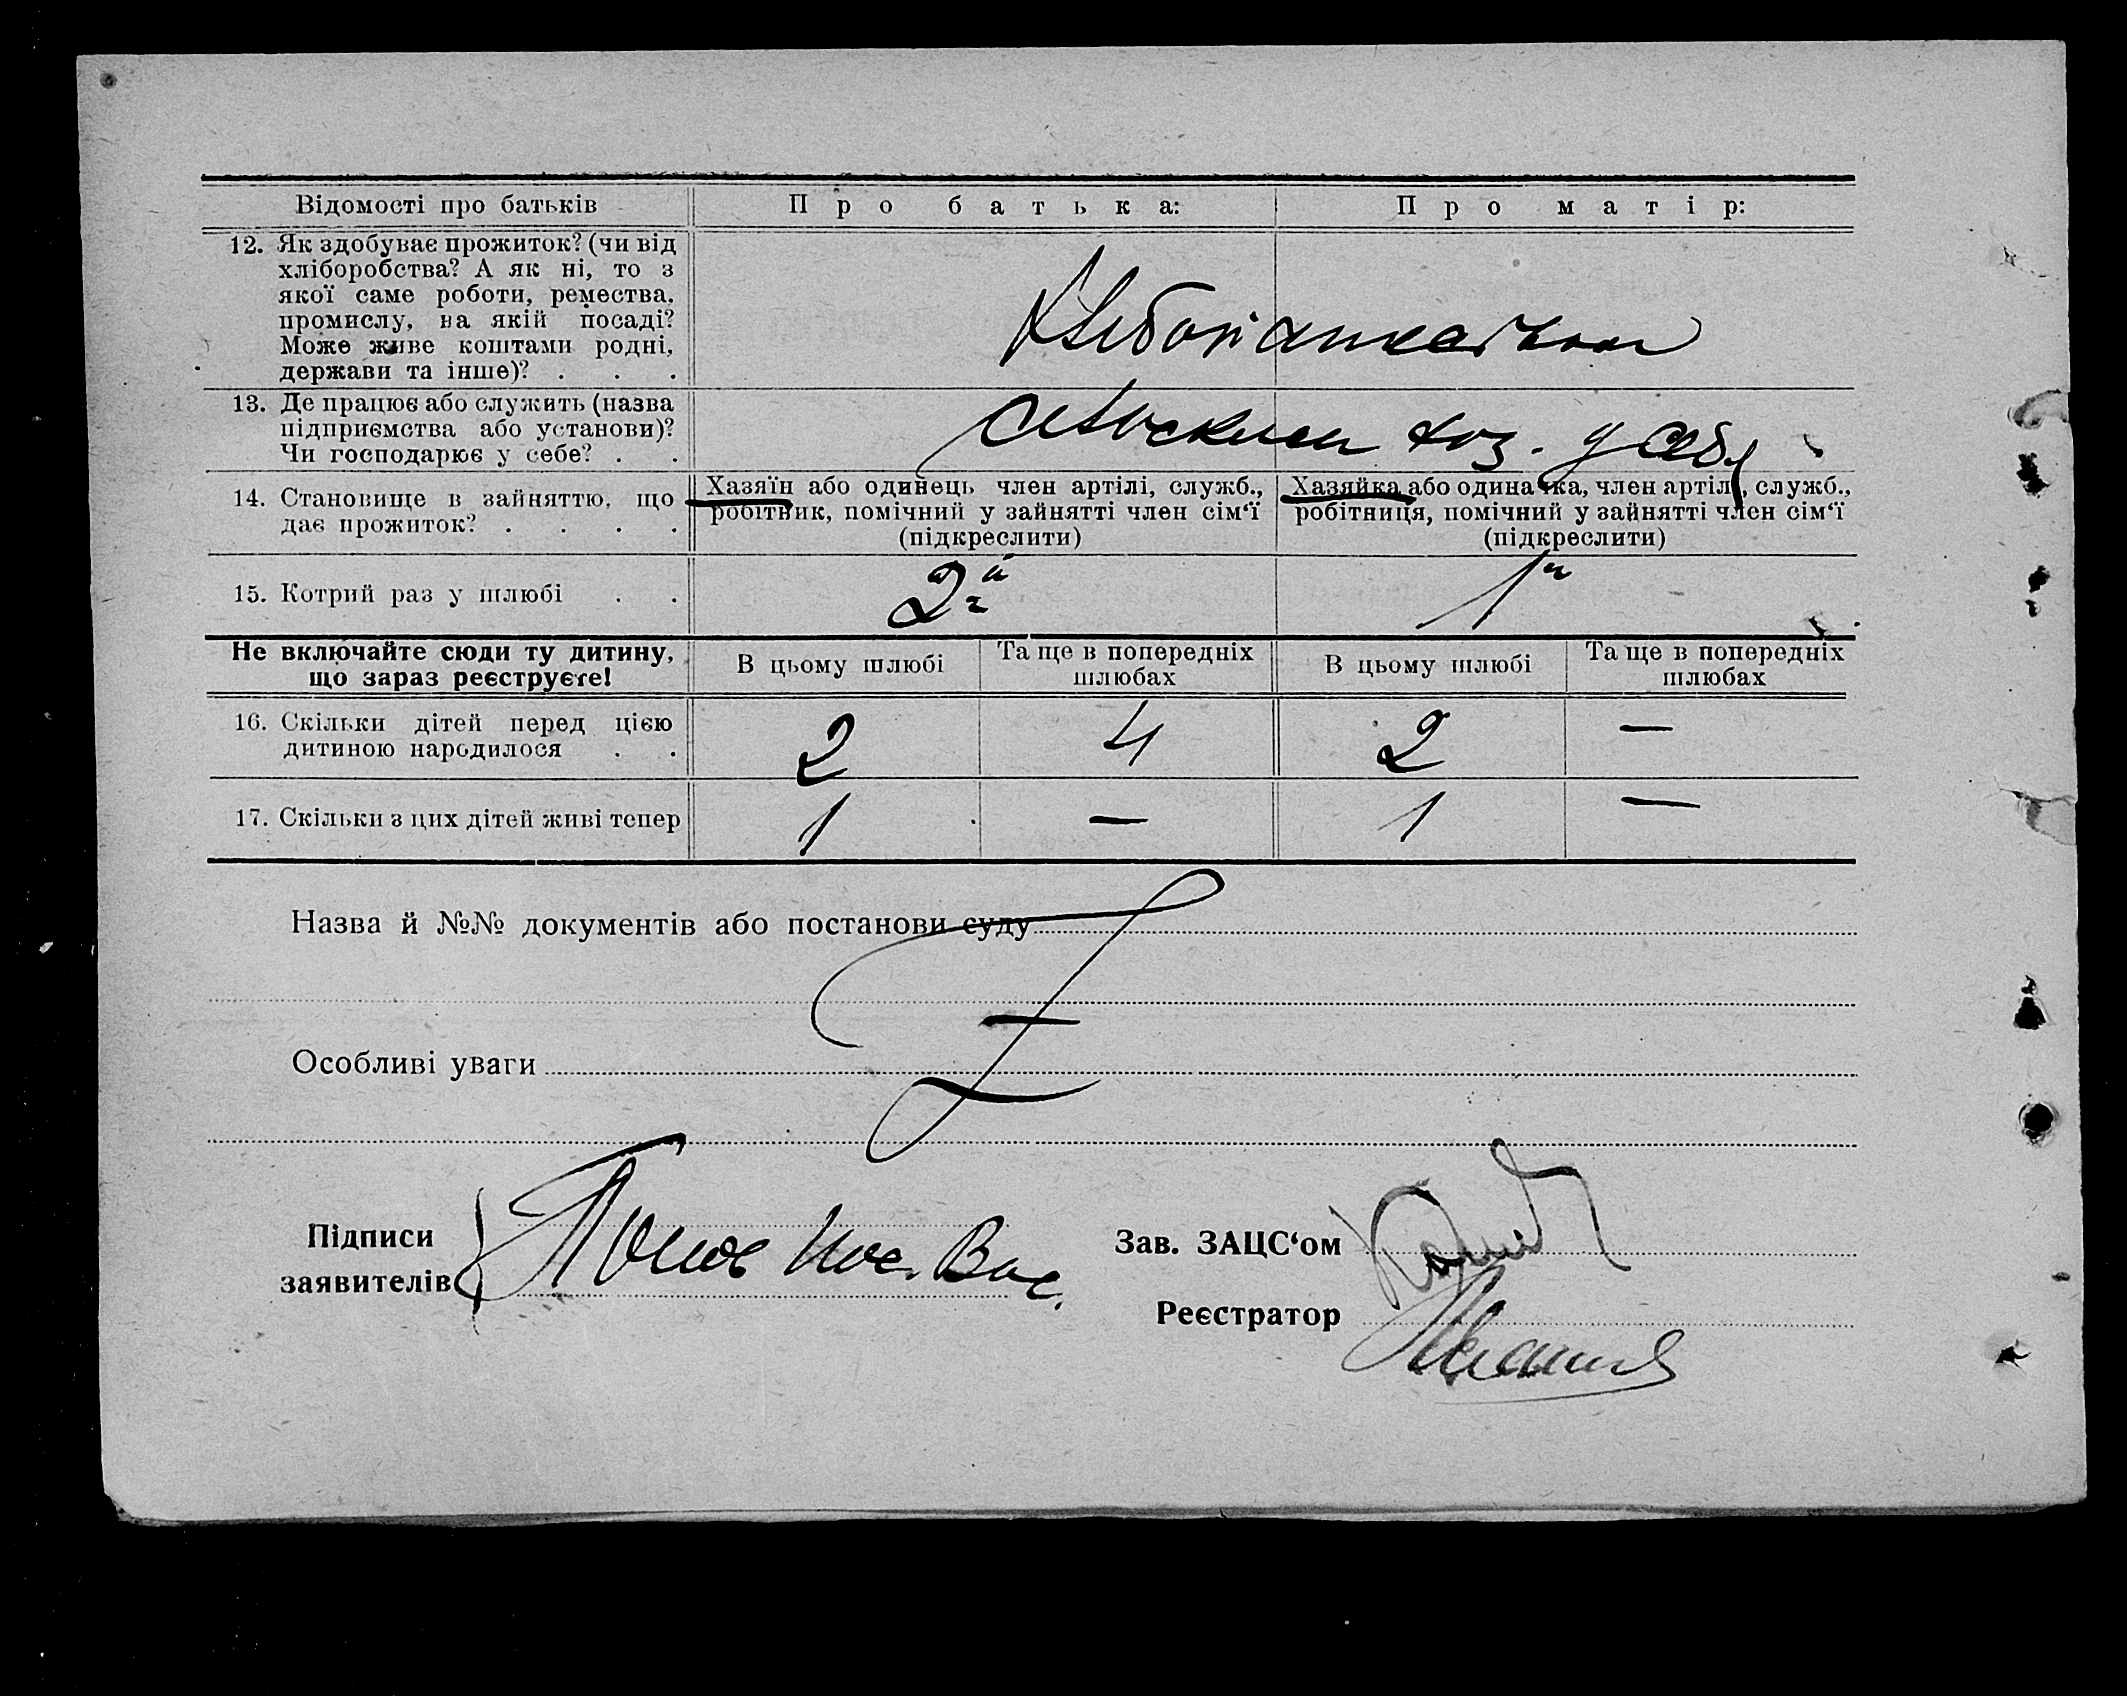 Відомості про батьків
Про батька:
Про матір:
12. Як здобуває прожиток? (чи від
хліборобства? А як ні, то з
якої саме роботи, ремества,
промислу, на якій посаді?
Може живе коштами родні,
держави та інше)? . . .
13. Де працює або служить (назва
підприємства або установи)?
Чи господарює у себе? . .
сельским хоз. у себя
14. Становище в зайняттю, що
дає прожиток? . . . .
Хазяїн або одинець член артілі, служб.,
робітник, помічний у зайнятті член сім‘ї
(підкреслити)
Хазяйка або одиначка, член артілі, служб.,
робітниця, помічний у зайнятті член сім‘ї
(підкреслити)
15. Котрий раз у шлюбі . .
2й
1й
Не включайте сюди ту дитину,
що зараз реєструєте!
В цьому шлюбі
Та ще в попередніх
шлюбах
В цьому шлюбі
Та ще в попередніх
шлюбах
16. Скільки дітей перед цією
дитиною народилося . .
2
4
2
—
17. Скільки з цих дітей живі тепер
1
—
1
—
Назва й №№ документів або постанови суду
Особливі уваги
Підписи
заявителів
Зав. ЗАЦС‘ом
Реєстратор